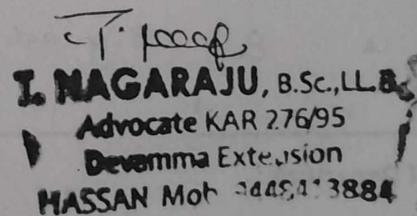 T. NAGARAJU, B.Sc., LL.B.
Advocate KAR 276/95
Devamma Extension
HASSAN Mob